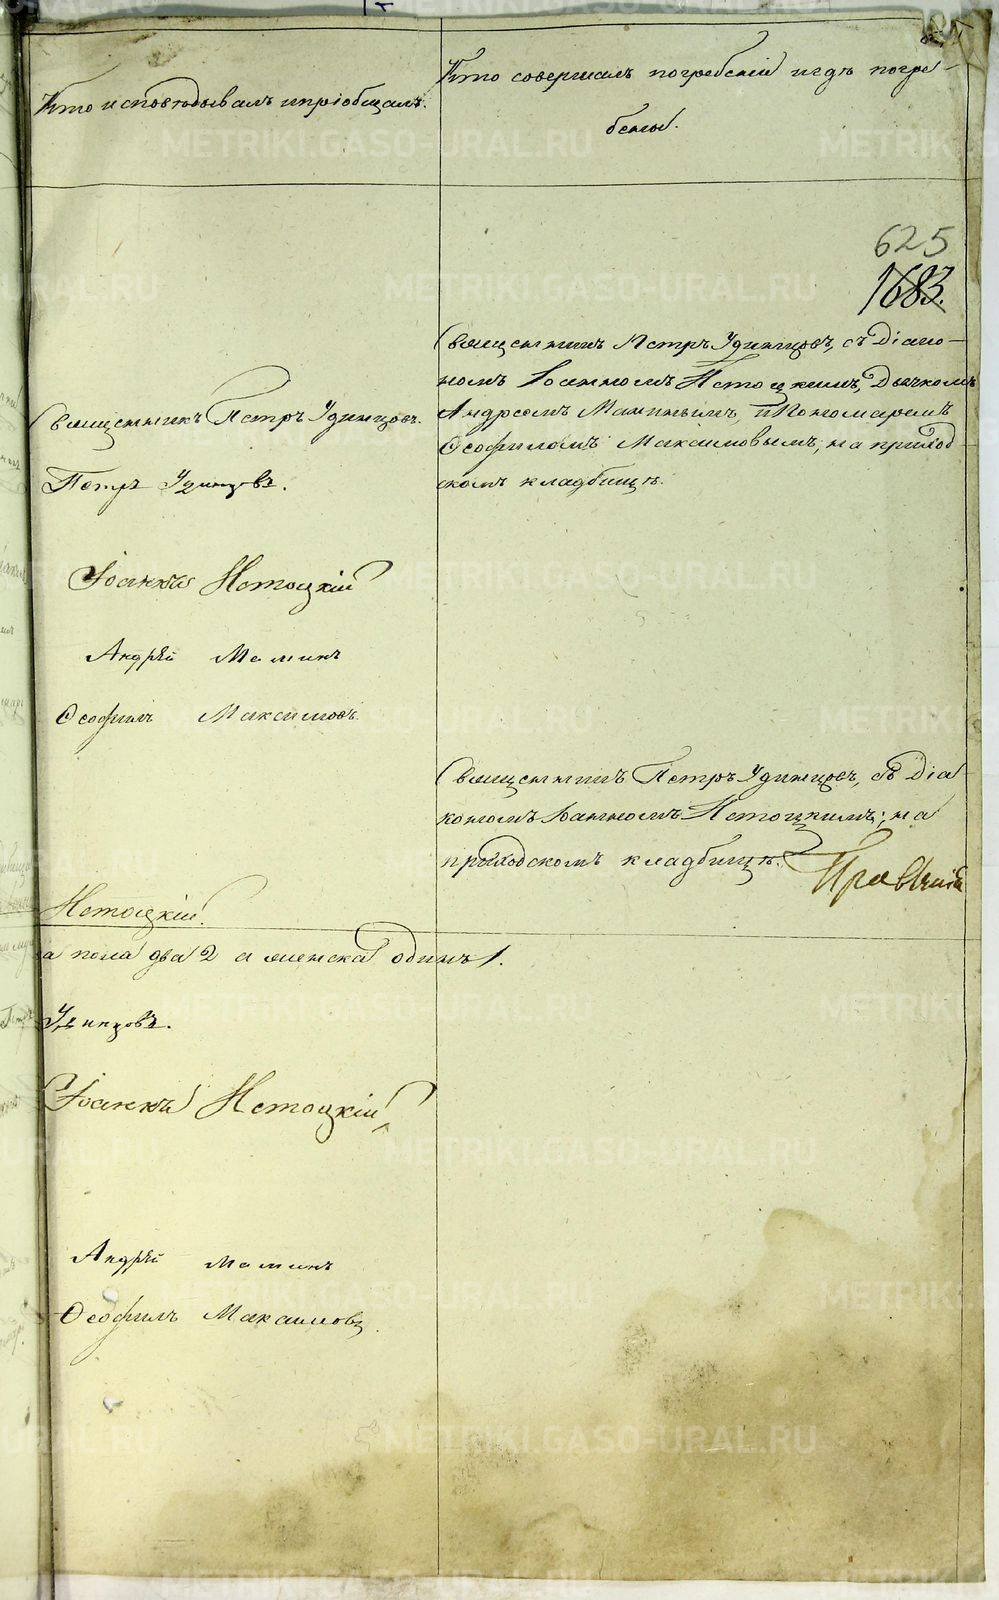 Кто исповѣдывалъ и пріобщалъ.
Кто совершалъ погребеніе и гдѣ погре-
бены.
625
1683.
Священникъ Петръ Удинцовъ.
Петръ Удинцовъ.
Іоаннъ Нетоцкій
Андрей Маминъ
Ѳеофилъ Максимовъ.
Священникъ Петръ Удинцовъ, съ Діако-
номъ Іоанномъ Нетоцкимъ, Дьячкомъ
Андреемъ Маминымъ, и Пономаремъ
Ѳеофиломъ Максимовымъ, на приход-
скомъ кладбищѣ.
Священникъ Петръ Удинцовъ, съ Діа-
кономъ Іоанномъ Нетоцкимъ; на
приходскомъ кладбищѣ.
Нетоцкій.
а пола два 2 а женска одинъ 1.
Удинцовъ.
Іоаннъ Нетоцкій
Андрей Маминъ
Ѳеофилъ Максимовъ.
METRIKI.GASO-URAL.RU